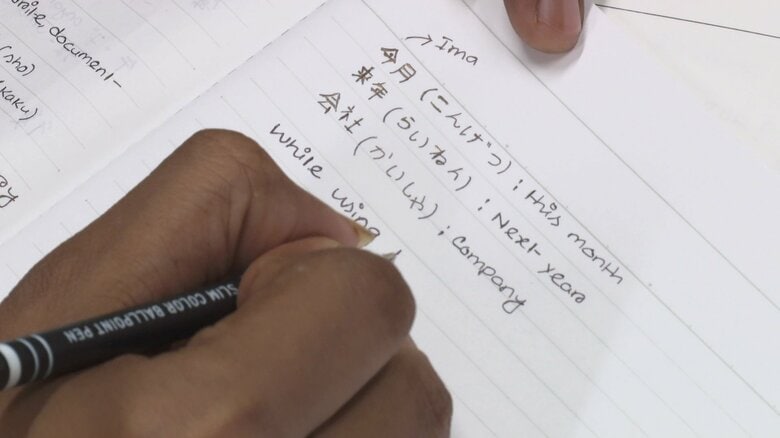 mile, document
(sho)
(kaku)
→ Ima
今月 (こんげつ) : this month
来年 (らいねん) : Next year
会社 (かいしゃ) : company
while using
SLIM COLOR BALLPOINT PEN